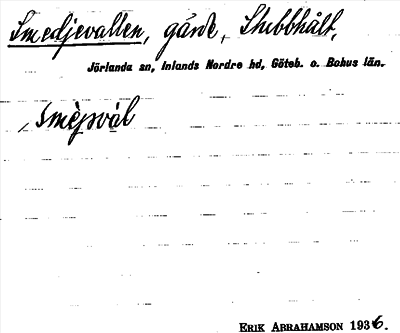 Smedjevallen, gärde, Stubbhålt,
Jörlanda sn, Inlands Nordre hd, Göteb. o. Bohus län.
smèpsvàl
ERIK ABRAHAMSON 1936.